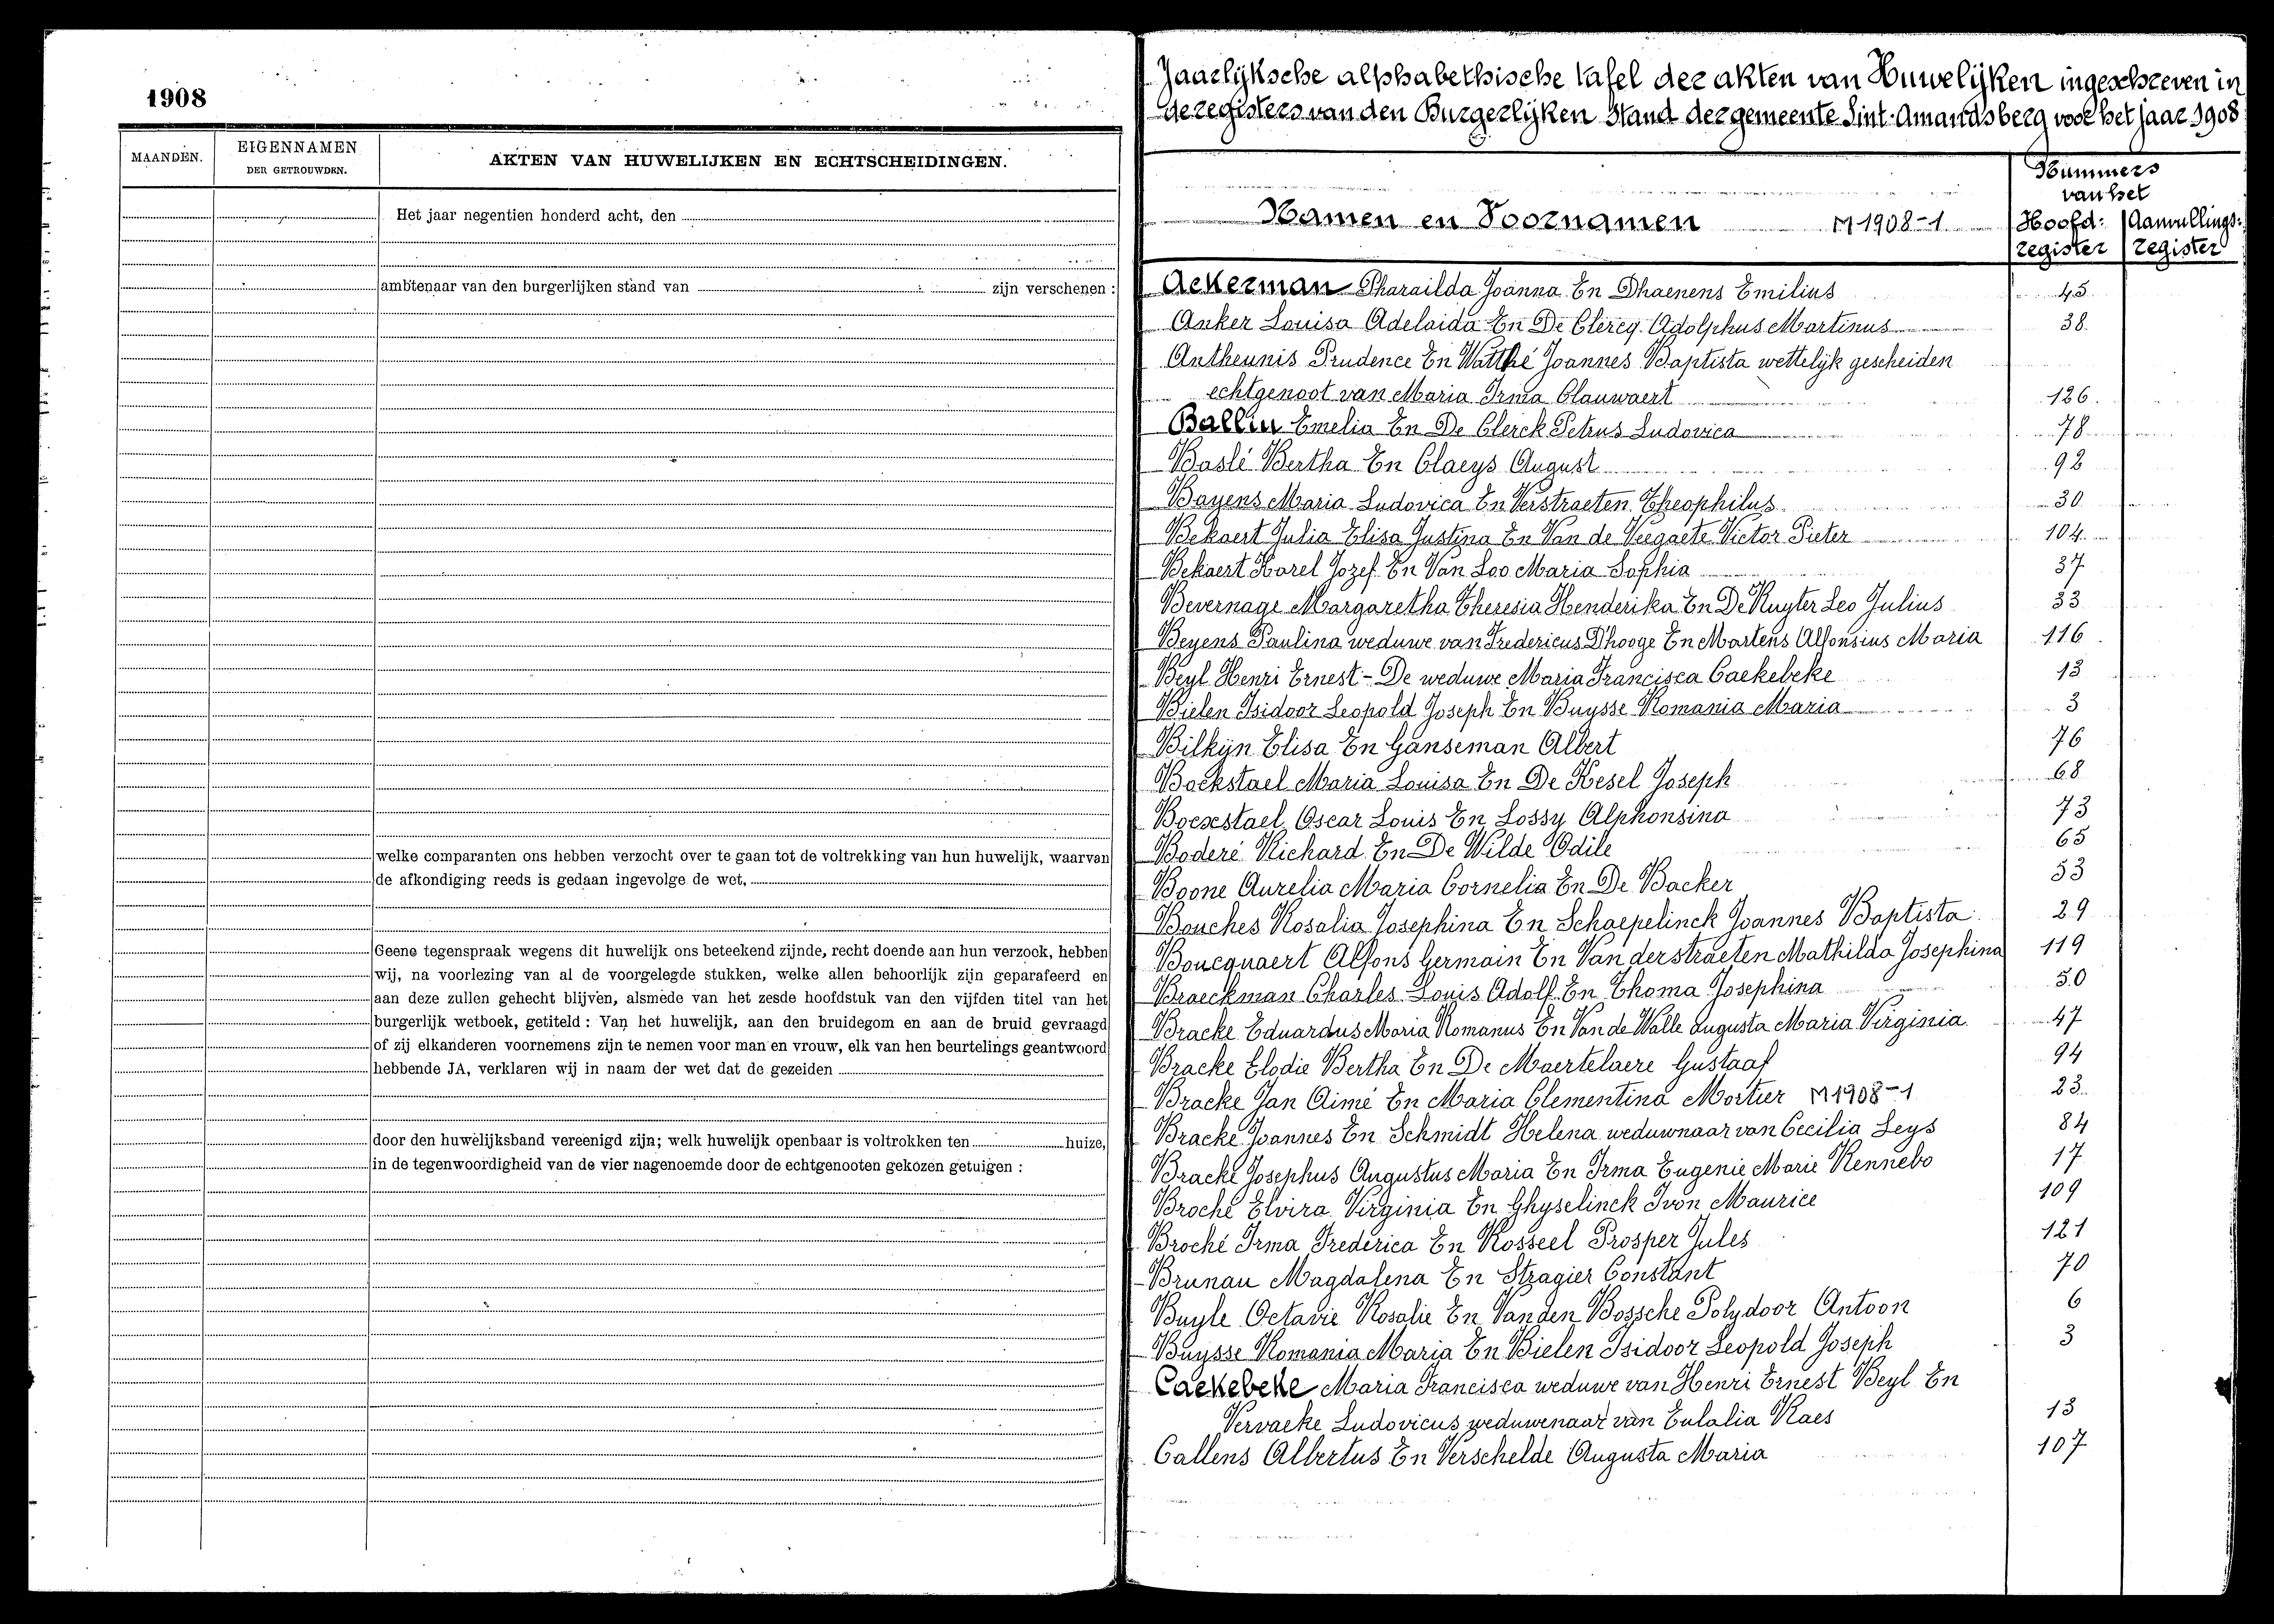 1908
MAANDEN.
EIGENNAMEN
DER GETROUWDEN.
AKTEN VAN HUWELIJKEN EN ECHTSCHEIDINGEN.
Het jaar negentien honderd acht, den
ambtenaar van den burgerlijken stand van zijn verschenen :
welke comparanten ons hebben verzocht over te gaan tot de voltrekking van hun huwelijk, waarvan
de afkondiging reeds is gedaan ingevolge de wet.
Geene tegenspraak wegens dit huwelijk ons beteekend zijnde, recht doende aan hun verzoek, hebben
wij, na voorlezing van al de voorgelegde stukken, welke allen behoorlijk zijn geparafeerd en
aan deze zullen gehecht blijven, alsmede van het zesde hoofdstuk van den vijfden titel van het
burgerlijk wetboek, getiteld : Van het huwelijk, aan den bruidegom en aan de bruid gevraagd
of zij elkanderen voornemens zijn te nemen voor man en vrouw, elk van hen beurtelings geantwoord
hebbende JA, verklaren wij in naam der wet dat de gezeiden
door den huwelijksband vereenigd zijn; welk huwelijk openbaar is voltrokken ten huize,
in de tegenwoordigheid van de vier nagenoemde door de echtgenooten gekozen getuigen :
Jaarlijksche alphabethische tafel der akten van Huwelijken ingeschreven in
de registers van den Burgerlijken Stand der gemeente Sint-Amandsberg voor het jaar 1908
Namen en Voornamen M 1908-1
Nummers
van het
Hoofd: Aanvullings:
register register
Ackerman Pharailda Joanna En Dhaenens Emilius 45
Anker Louisa Adelaida En De Clercq Adolphus Martinus 38
Antheunis Prudence En Watthé Joannes Baptista wettelijk gescheiden
echtgenoot van Maria Irma Clauwaert 126
Balliu Emelia En De Clerck Petrus Ludovica 78
Baslé Bertha En Claeys August 92
Bayens Maria Ludovica En Verstraeten Theophilus 30
Bekaert Julia Elisa Justina En Van de Veegaete Victor Pieter 104
Bekaert Karel Jozef En Van Loo Maria Sophia 37
Bevernage Margaretha Theresia Henderika En De Ruyter Leo Julius 33
Beyens Paulina weduwe van Fredericus D'hooge En Martens Alfonsius Maria 116
Beyl Henri Ernest - De weduwe Maria Francisca Caekebeke 13
Bielen Isidoor Leopold Joseph En Buysse Romania Maria 3
Bilkijn Elisa En Ganseman Albert 76
Bockstael Maria Louisa En De Kesel Joseph 68
Bocxstael Oscar Louis En Lossy Alphonsina 73
Boderé Richard En De Wilde Odile 65
Boone Aurelia Maria Cornelia En De Backer 53
Bouches Rosalia Josephina En Schaepelinck Joannes Baptista 29
Boucquaert Alfons Germain En Van derstraeten Mathilda Josephina 119
Braeckman Charles Louis Adolf En Thoma Josephina 50
Bracke Eduardus Maria Romanus En Van de Walle Augusta Maria Virginia 47
Bracke Elodie Bertha En De Maertelaere Gustaaf 94
Bracke Jan Aimé En Maria Clementina Mortier M 1908-1 23
Bracke Joannes En Schmidt Helena weduwnaar van Cecilia Leys 84
Bracke Josephus Augustus Maria En Irma Eugenie Marie Rennebo 17
Broché Elvira Virginia En Ghyselinck Ivon Maurice 109
Broché Irma Frederica En Rosseel Prosper Jules 121
Brunau Magdalena En Stragier Constant 70
Buyle Octavie Rosalie En Van den Bossche Polydoor Antoon 6
Buysse Romania Maria En Bielen Isidoor Leopold Joseph 3
Caekebeke Maria Francisca weduwe van Henri Ernest Beyl En
Vervaeke Ludovicus weduwenaar van Eulalia Raes 13
Callens Albertus En Verschelde Augusta Maria 107